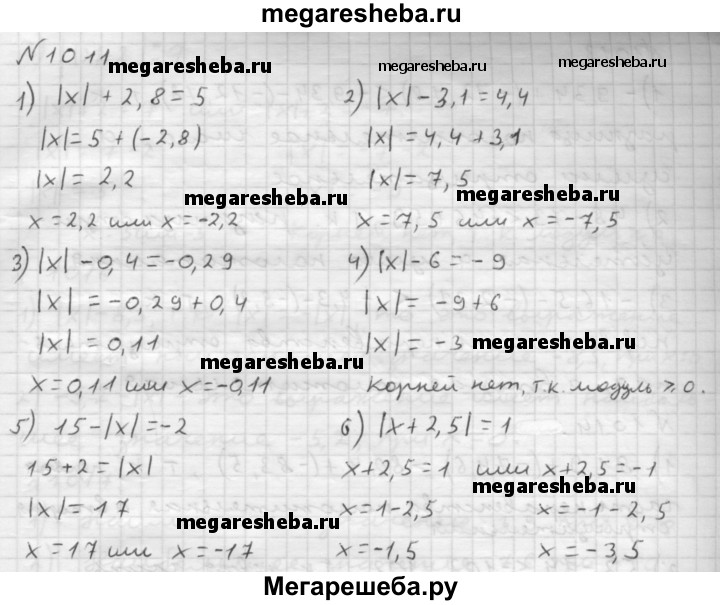 megaresheba.ru
N 1011
megaresheba.ru megaresheba.ru megaresheba.ru
1) |x| + 2,8 = 5
|x| = 5 + (-2,8)
|x| = 2,2
megaresheba.ru
x = 2,2 или x = -2,2
2) |x| - 3,1 = 4,4
|x| = 4,4 + 3,1
|x| = 7,5
megaresheba.ru
x = 7,5 или x = -7,5
3) |x| - 0,4 = -0,29
|x| = -0,29 + 0,4
|x| = 0,11
megaresheba.ru
x = 0,11 или x = -0,11
4) |x| - 6 = -9
|x| = -9 + 6
|x| = -3
megaresheba.ru
корней нет, т.к. модуль ≥ 0.
5) 15 - |x| = -2
15 + 2 = |x|
|x| = 17
megaresheba.ru
x = 17 или x = -17
6) |x + 2,5| = 1
x + 2,5 = 1 или x + 2,5 = -1
megaresheba.ru
x = 1 - 2,5 x = -1 - 2,5
megaresheba.ru
x = -1,5 x = -3,5
Мегарешеба.ру